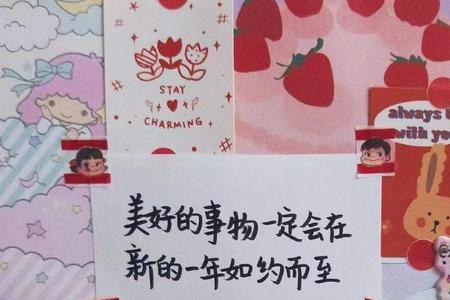 STAY
CHARMING
always
with you
美好的事物一定会在
新的一年如约而至